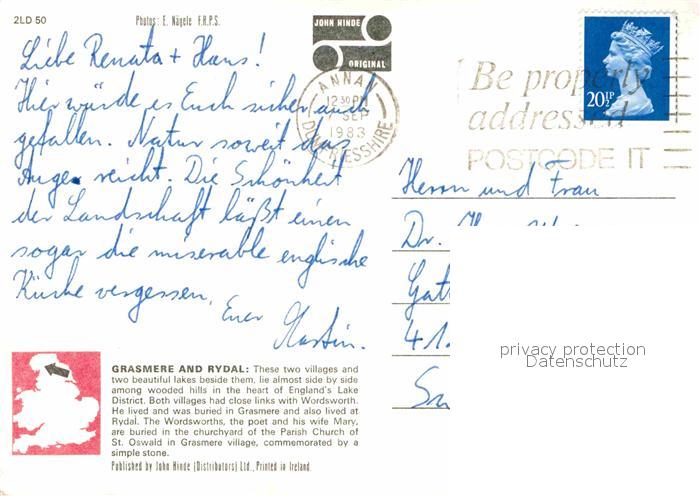 2LD 50
Photos: E. Nägele F.R.P.S.
JOHN HINDE
ORIGINAL
Liebe Renata + Hans!
Hier würde es Euch sicher auch
gefallen. Natur soweit das
Auge reicht. Die Schönheit
der Landschaft läßt einen
sogar die miserable englische
Küche vergessen.
Euer
Martin.
ANNAN
12 30 PM
7 SEP
1983
DUMFRIESSHIRE
Be properly
addressed
POSTCODE IT
20½P
Herrn und Frau
Dr.
41.
GRASMERE AND RYDAL: These two villages and
two beautiful lakes beside them, lie almost side by side
among wooded hills in the heart of England's Lake
District. Both villages had close links with Wordsworth.
He lived and was buried in Grasmere and also lived at
Rydal. The Wordsworths, the poet and his wife Mary,
are buried in the churchyard of the Parish Church of
St. Oswald in Grasmere village, commemorated by a
simple stone.
Published by John Hinde (Distributors) Ltd., Printed in Ireland.
privacy protection
Datenschutz